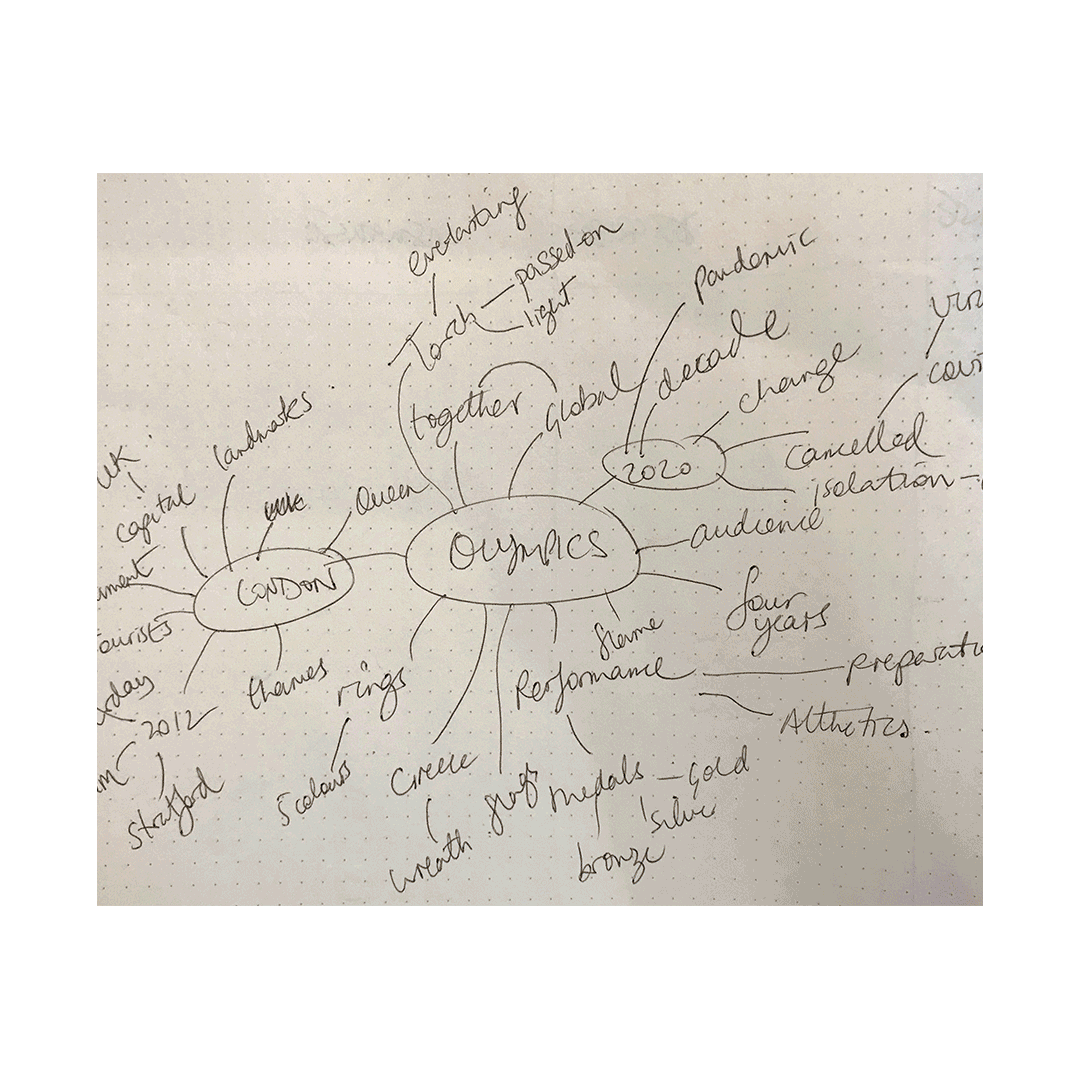 everlasting
passed on
Torch
light
Pandemic
decade
change
together
Global
landmarks
UK
capital
Queen
2020
cancelled
isolation
OLYMPICS
audience
LONDON
four
years
flame
Performance
thames
rings
2012
Althetics.
stratford
5 colours
Greece
medals
gold
silver
bronze
wreath